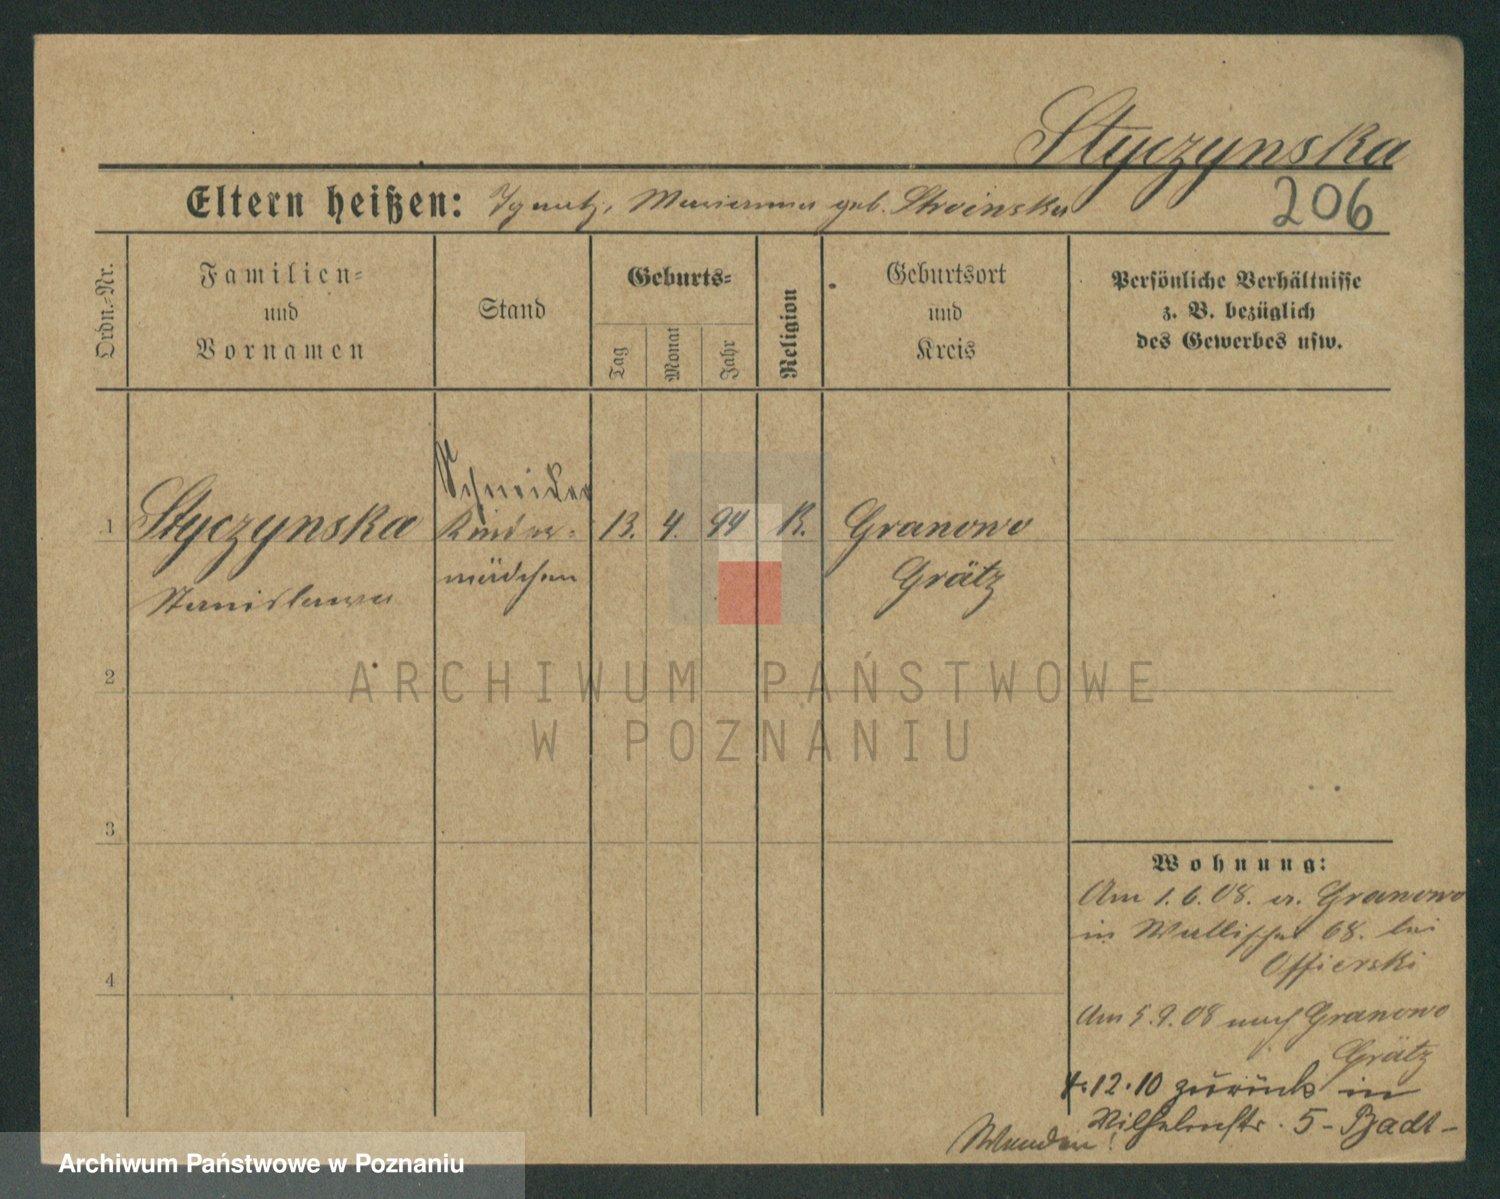 Styczynska
Eltern heißen: Ignatz, Marianna geb. Stroinska
206
Ordn.-Nr.
Familien-
und
Vornamen
Stand
Geburts-
Tag
Monat
Jahr
Religion
Geburtsort
und
Kreis
Persönliche Verhältnisse
z. B. bezüglich
des Gewerbes usw.
Schneider
1 Styczynska Kinder- 13. 4. 94 K. Granowo
mädchen Grätz
Stanislawa
2
ARCHIWUM PAŃSTWOWE
W POZNANIU
3
Wohnung:
Am 1.6.08. a. Granowo
in Wallischei 68. bei
Offierski
4
Am 5.9.08 nach Granowo
Grätz
4.12.10 zurück in
Wilhelmstr. 5 - Badt -
Archiwum Państwowe w Poznaniu